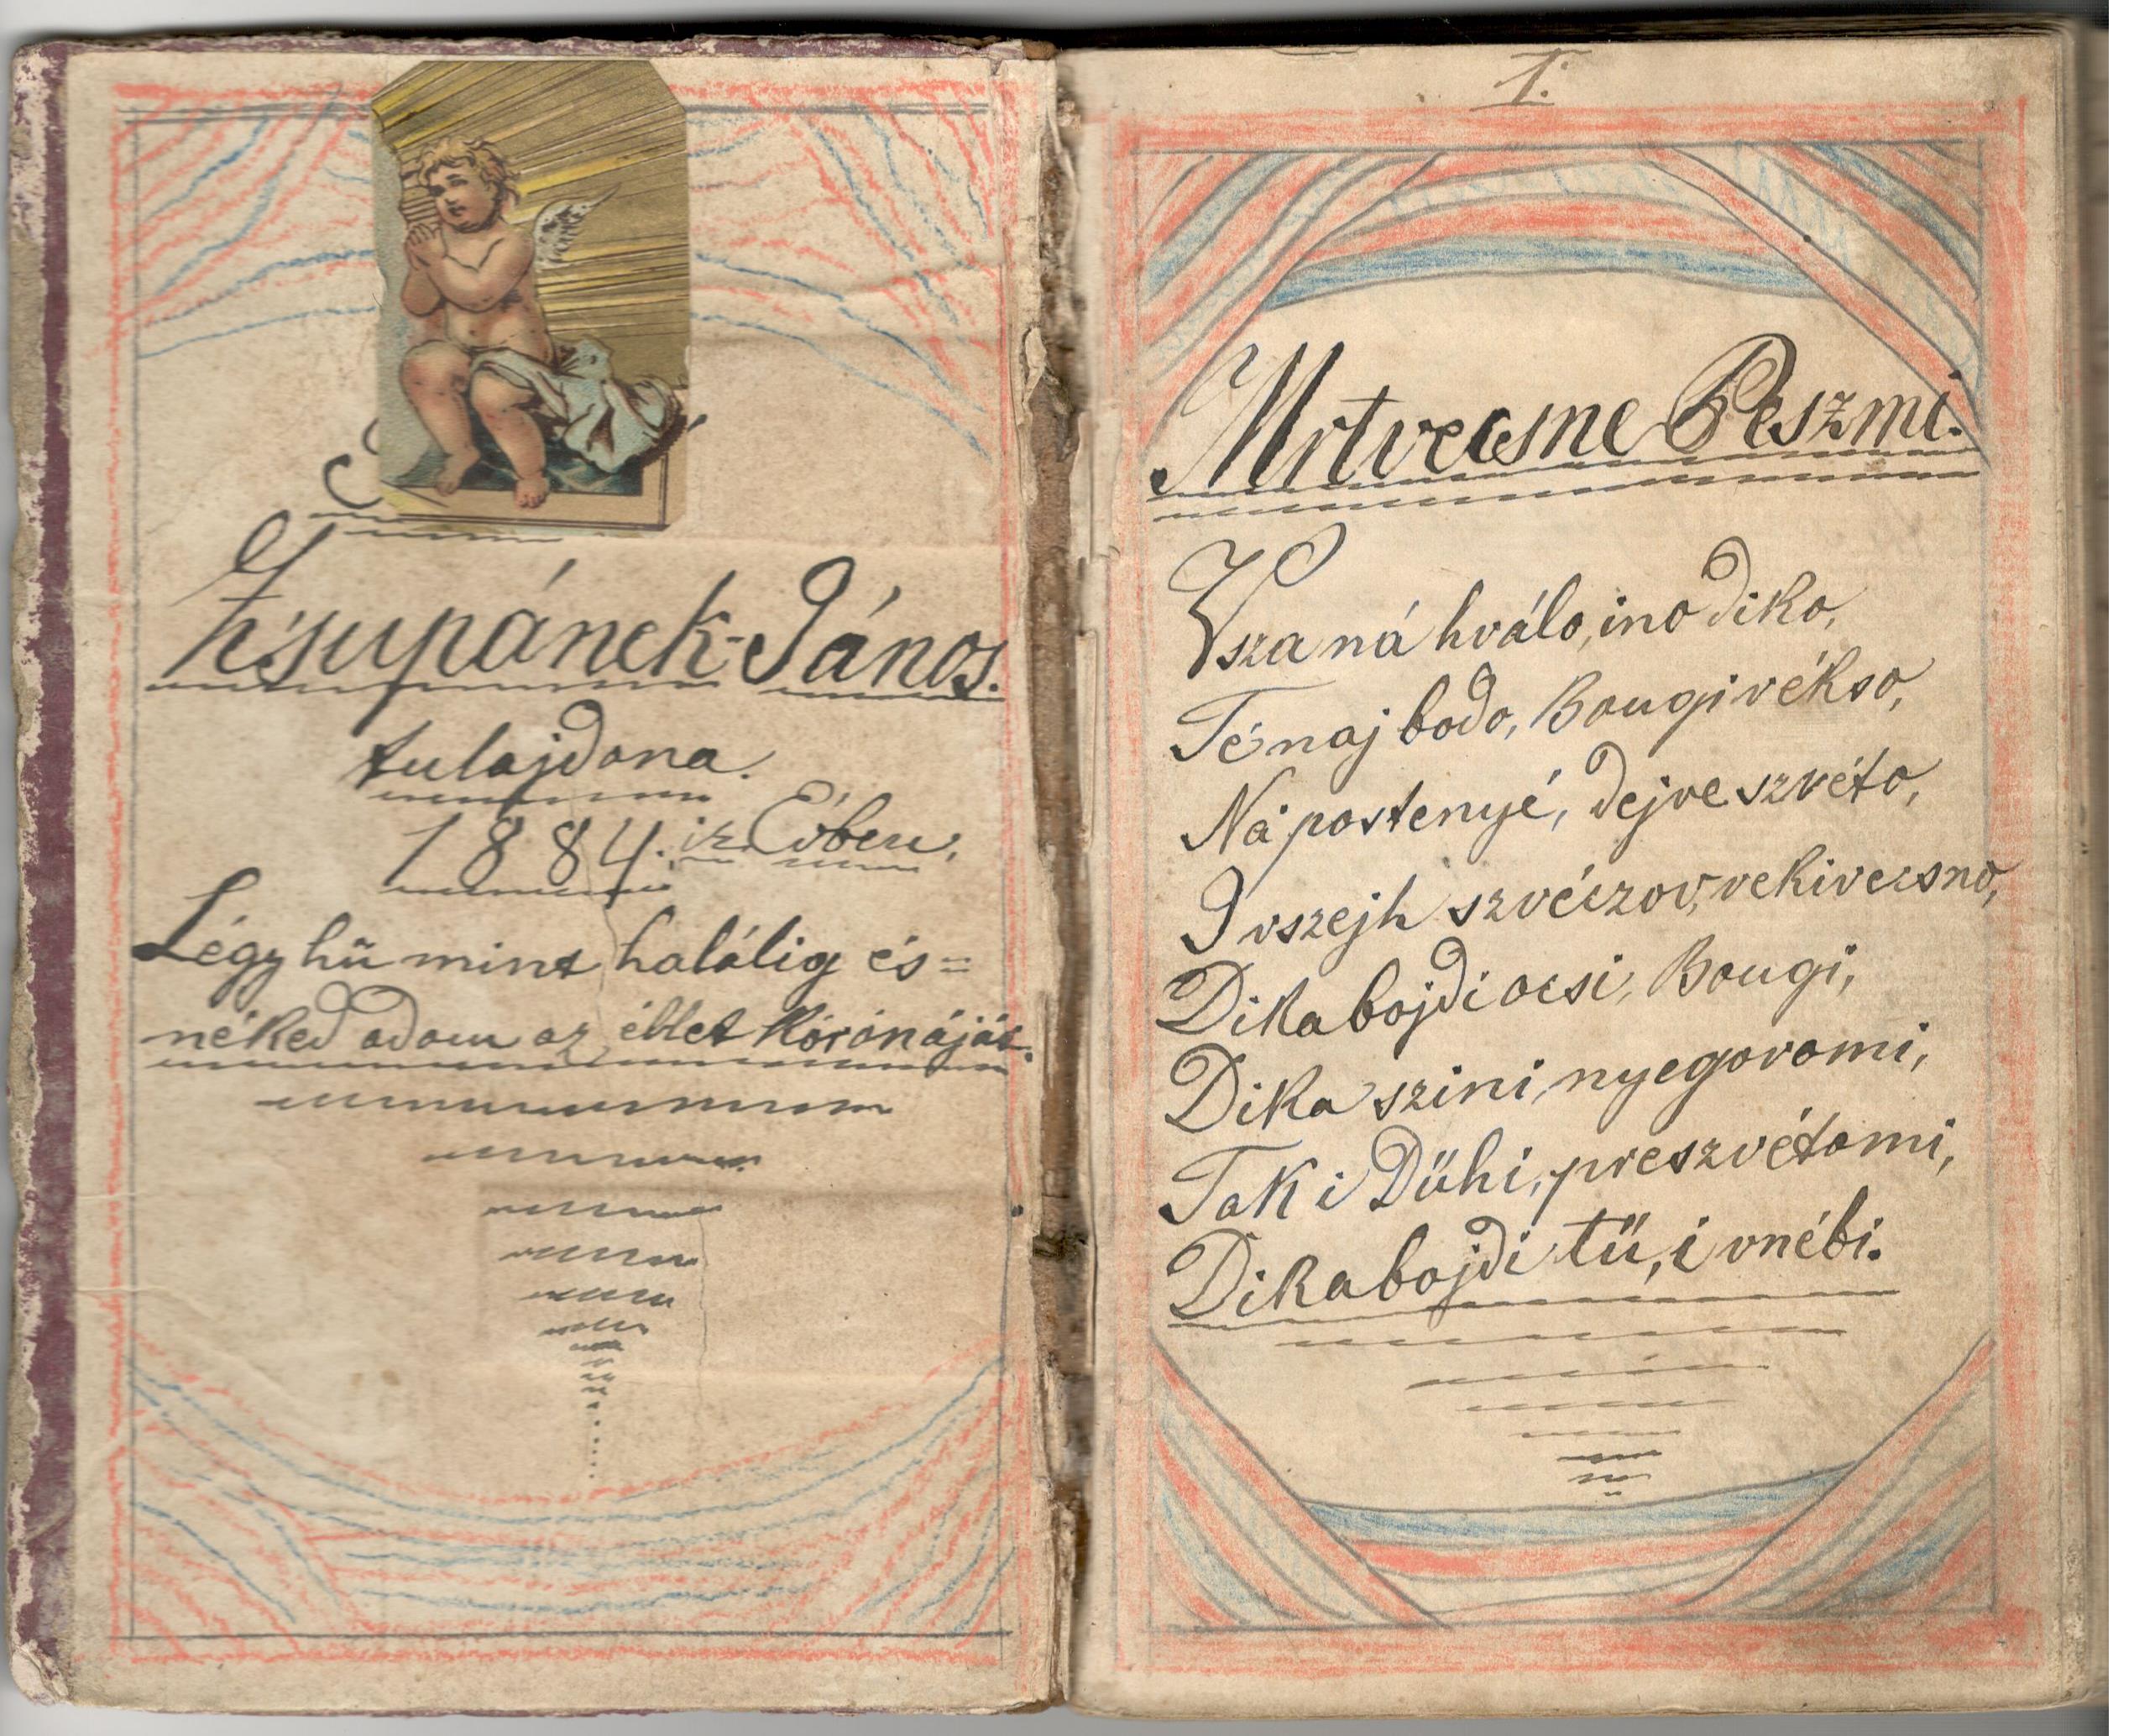 Zsupánek-János.
tulajdona.
1884. iz Évben,
Légy hű mint halálig és=
néked adom az éllet kórónáját.
1.
Mrtvecsne Peszmi.
Vsza ná hválo, ino diko,
Té naj bodo, Bougi vékso,
Ná postenyé, dejve szvéto,
I vszejh szvéczov, vekivecsno,
Dika bojdi ocsi, Bougi,
Dika szini, nyegovomi,
Tak i Dühi, preszvétomi,
Dika bojdi tü, i vnébi.